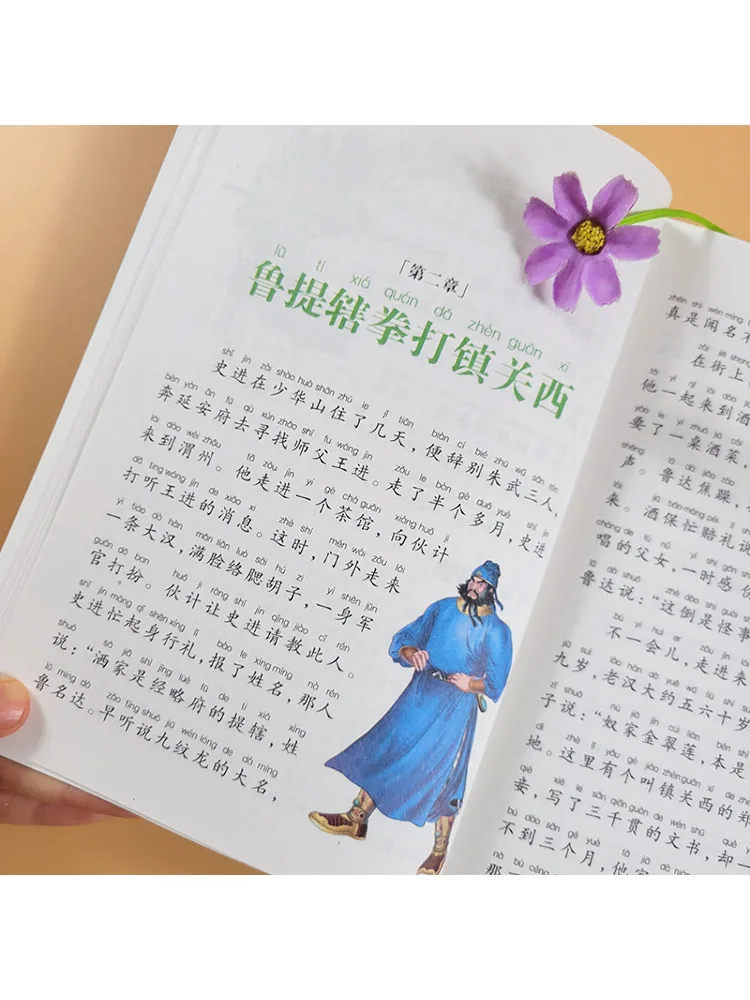 「第二章」
lǔ tí xiá quán dǎ zhèn guān xī
鲁提辖拳打镇关西
shǐ jìn zài shào huà shān zhù le jǐ tiān biàn cí bié zhū wǔ sān rén
史进在少华山住了几天，便辞别朱武三人，
bèn yán ān fǔ qù xún zhǎo shī fu wáng jìn zǒu le bàn gè duō yuè shǐ jìn
奔延安府去寻找师父王进。走了半个多月，史进
lái dào wèi zhōu tā zǒu jìn yí gè chá guǎn xiàng huǒ jì
来到渭州。他走进一个茶馆，向伙计
dǎ tīng wáng jìn de xiāo xi zhè shí mén wài zǒu lái
打听王进的消息。这时，门外走来
yì tiáo dà hàn mǎn liǎn luò sāi hú zi yì shēn jūn
一条大汉，满脸络腮胡子，一身军
guān dǎ ban huǒ jì ràng shǐ jìn qǐng jiào cǐ rén
官打扮。伙计让史进请教此人。
shǐ jìn máng qǐ shēn xíng lǐ bào le xìng míng nà rén
史进忙起身行礼，报了姓名，那人
shuō sǎ jiā shì jīng lüè fǔ de tí xiá xìng
说：“洒家是经略府的提辖，姓
lǔ míng dá zǎo tīng shuō jiǔ wén lóng de dà míng
鲁名达。早听说九纹龙的大名，
zhēn shì wén míng
真是闻名不
zài jiē shang
在街上
tā yì qǐ lái dào
他一起来到酒
yào le yì zhuō jiǔ cài
要了一桌酒菜
声。鲁达焦躁，
来。酒保忙赔礼说
唱的父女，一时感
鲁达说：“这倒是怪事
bù yí huì er
不一会儿，走进来
九岁，老汉大约五六十岁
子说：“奴家金翠莲，本是
地。这里有个叫镇关西的郑
妾，写了三千贯的文书，却一
bú dào sān gè yuè
不到三个月，他家
那一